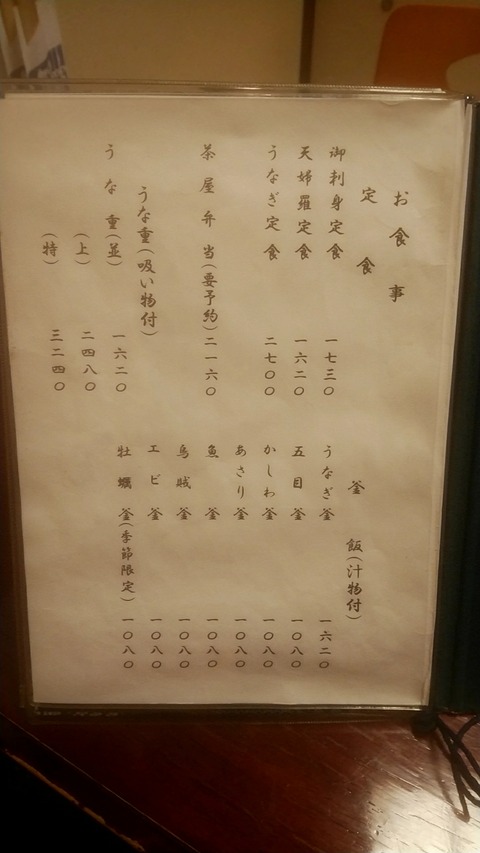 お食事
定食
御刺身定食 一七三〇
天婦羅定食 一六二〇
うなぎ定食 二七〇〇
茶屋弁当(要予約) 二一六〇
うな重(吸い物付)
うな重(並) 一六二〇
(上) 二四八〇
(特) 三二四〇
釜飯(汁物付)
うなぎ釜 一六二〇
五目釜 一〇八〇
かしわ釜 一〇八〇
あさり釜 一〇八〇
魚釜 一〇八〇
烏賊釜 一〇八〇
エビ釜 一〇八〇
牡蠣釜(季節限定) 一〇八〇